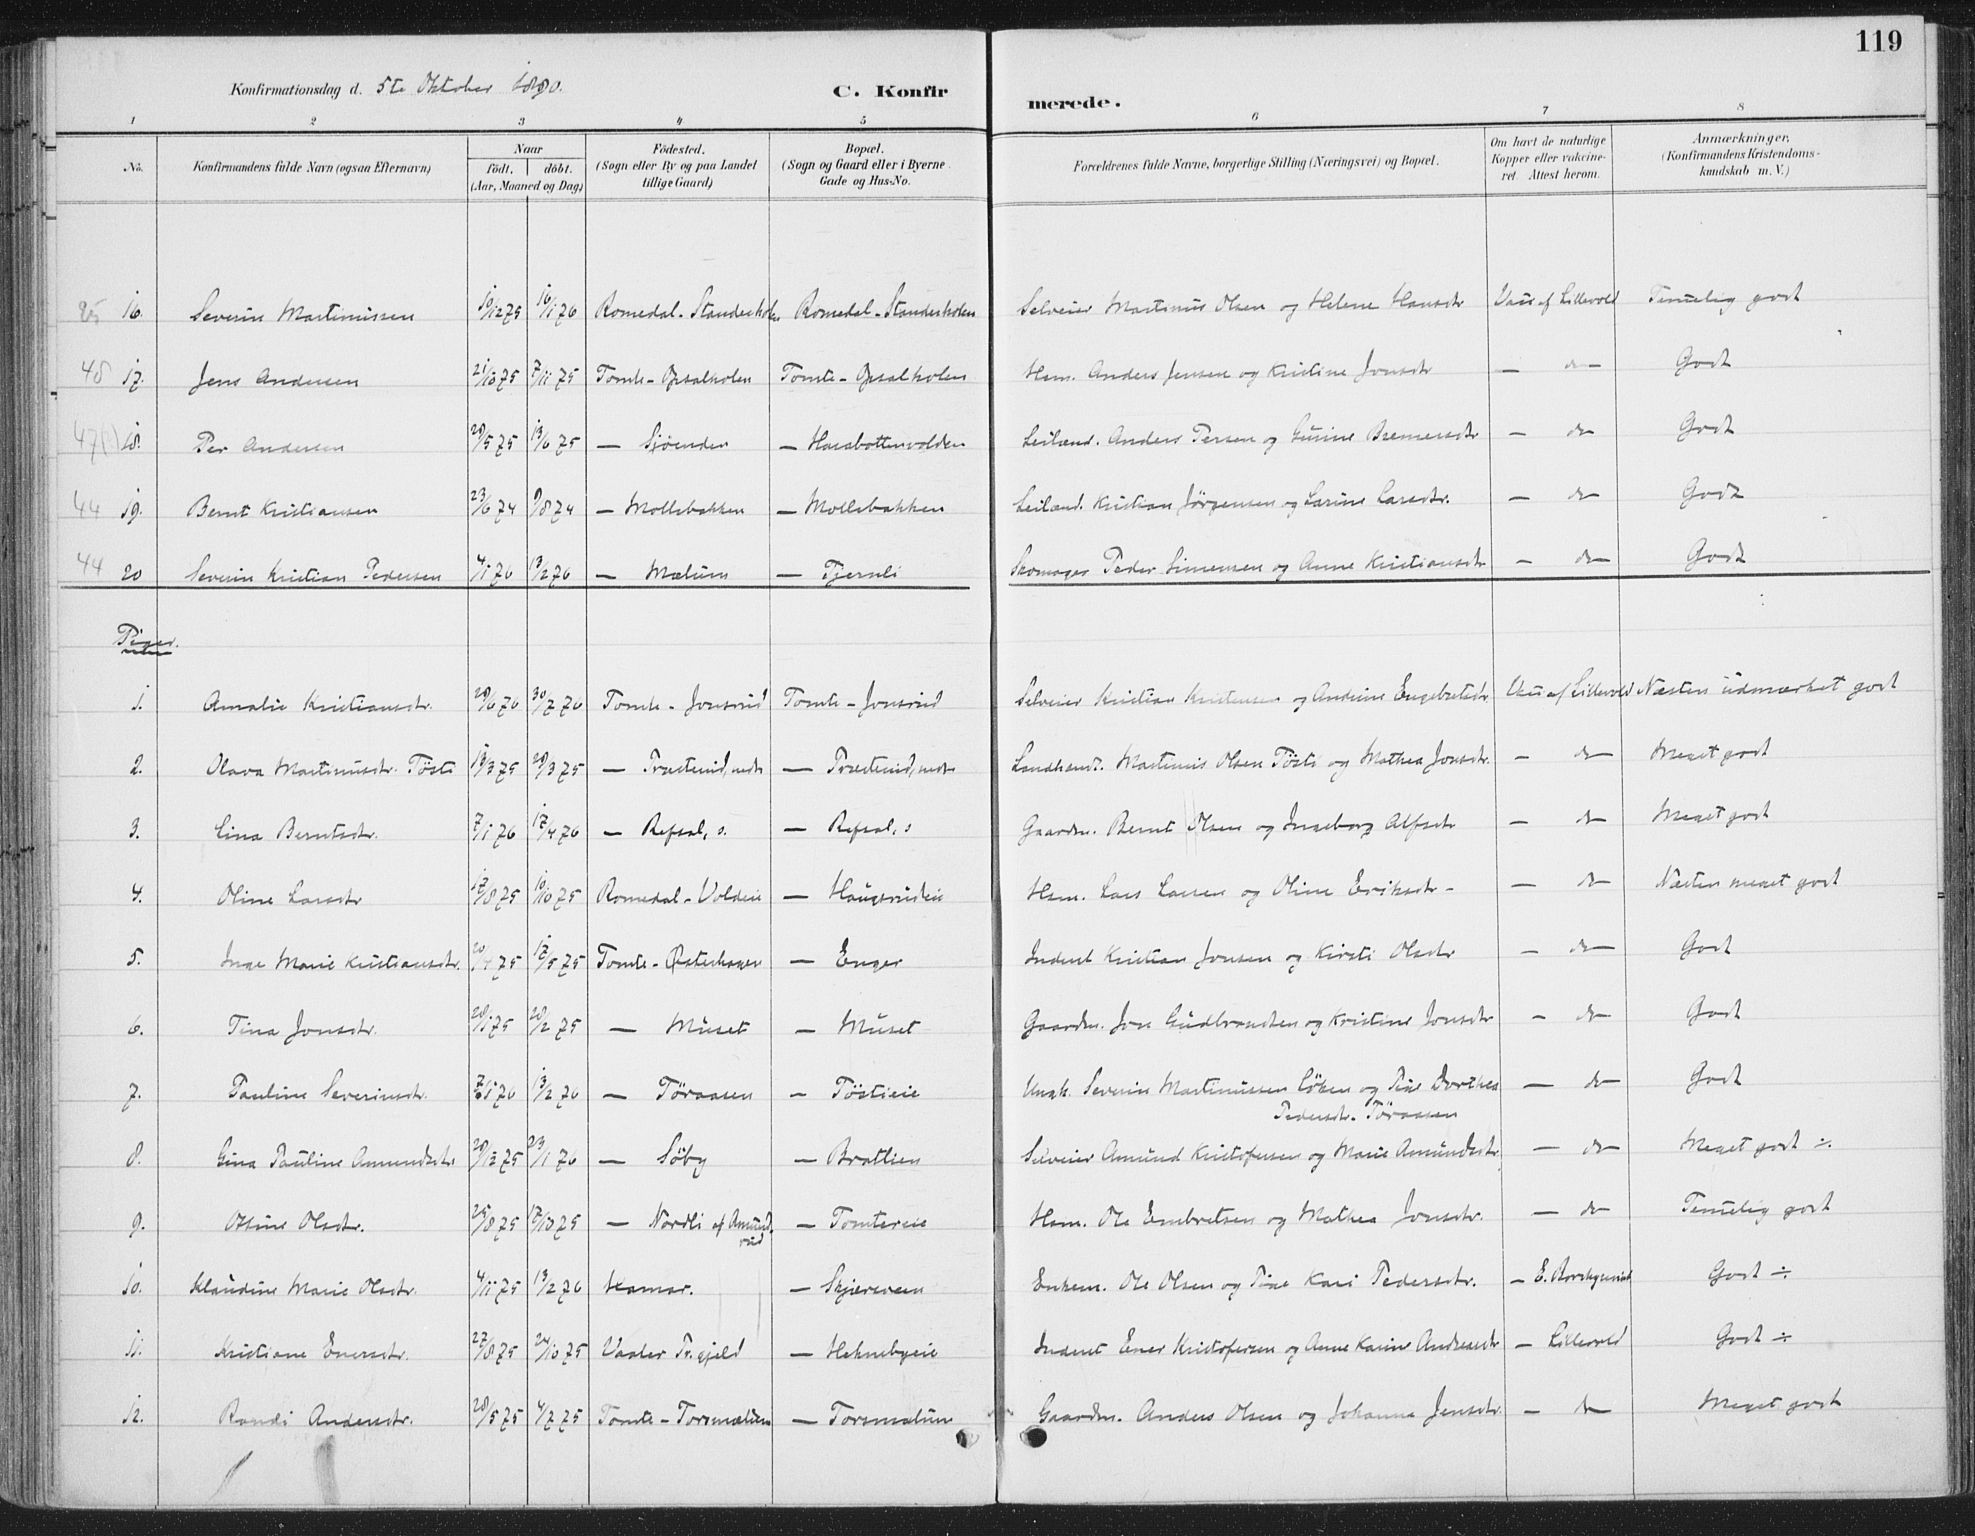 119
Konfirmationsdag d. 5te Oktober 1890.
C. Konfirmerede.
1 2 3 4 5 6 7 8
No. Konfirmandens fulde Navn (ogsaa Efternavn) Naar født. døbt. (Aar, Maaned og Dag) Fødested. (Sogn eller By og paa Landet tillige Gaard) Bopæl. (Sogn og Gaard eller i Byerne Gade og Hus-No. Forældrenes fulde Navne, borgerlige Stilling (Næringsvei) og Bopæl. Om havt de naturlige Kopper eller vakcineret. Attest herom. Anmærkninger, (Konfirmandens Kristendomskundskab m. V.)
16. Severin Martinussen 10/12 75 16/1 76 Romedal - Romedal - Selveier Martinus Olsen og Helene Hansdtr af Lillevold Temelig godt
48 17. Jens Andersen 21/10 75 7/11 75 Tomte - Opsalholen Tomte - Opsalholen Hsm. Anders Jensen og Kristine Jonsdtr — do — Godt
18. Per Andersen 29/5 75 13/6 75 — Sjøenden — Leilænd. Anders Persen og — do — Godt
44 19. Bernt Kristiansen 23/6 74 9/8 74 — Mollebakken — Mollebakken Leilænd. Kristian Jørgensen og Larine Larsdtr. — do — Godt
44 20 Severin Kristian Pedersen 4/1 76 13/2 76 — Mælum — Tjernli Skomager Peder Simensen og Anne Kristiansdtr — do — Godt
Piger.
1. Amalie Kristiansdtr. 29/6 76 30/7 76 Tomte - Jonsrud Tomte - Jonsrud Selveier Kristian Kristensen og Andrine Engebretsdtr af Lillevold Næsten udmærket godt
2. Olava Martinusdtr. Tösti 13/3 75 29/3 75 — Præsterud, nedr — Præsterud, nedr Landhandl. Martinus Olsen Tösti og Mathea Jonsdtr. — do — Meget godt
3. Lina Berntsdtr. 7/1 76 17/4 76 — Refsal, s. — Refsal, s Gaardm. Bernt Olsen og Ingeborg Alfsdtr — do — Meget godt
4. Oline Larsdtr 17/8 75 10/10 75 Romedal - Voldeie — Haugsrudeie Hsm. Lars Larsen og Oline Eriksdtr - — do — Næsten meget godt
5. Inge Marie Kristiansdtr. 20/4 75 17/5 75 Tomte - Østerhagen — Enger Inderst Kristian Jonsen og Kirsti Olsdtr — do — Godt
6. Tina Jonsdtr. 28/1 75 28/2 75 — Muset — Muset Gaardm. Jon Gudbrandsen og Kristine Jonsdtr — do — Godt
7. Pauline Severinsdtr. 7/1 76 13/2 76 — Töraasen — Töstieie Ungk. Severin Martinussen Löken og Pige Dorthea — do — Godt
Pedersdtr. Töraasen
8. Gina Pauline Amundsdtr 28/12 75 23/1 76 — Söby — Brattlien Selveier Amund Kristofersen og Marie Amundsdtr. — do — Meget godt ÷
9. Otsine Olsdtr. 25/8 75 17/10 75 — Nordli af Amund- — Tomtereie Hsm. Ole Embretsen og Mathea Jonsdtr. — do — Temelig godt
rud
10. Klaudine Marie Olsdtr. 4/11 75 13/2 76 Hamar. — Skjæreveen Enkem. Ole Olsen og Pige Kari Pedersdtr. — E. Godt ÷
11. Kristiane Enersdtr. 27/8 75 24/10 75 Vaaler Pr. gjeld — Helsnebyeie Inderst Ener Kristofersen og Anne Karine Andreasdtr — Lillevold Godt ÷
12. Randi Andersdtr. 28/5 75 4/7 75 Tomte - Torsmælum — Torsmælum Gaardm. Anders Olsen og Johanne Jensdtr. — do — Meget godt